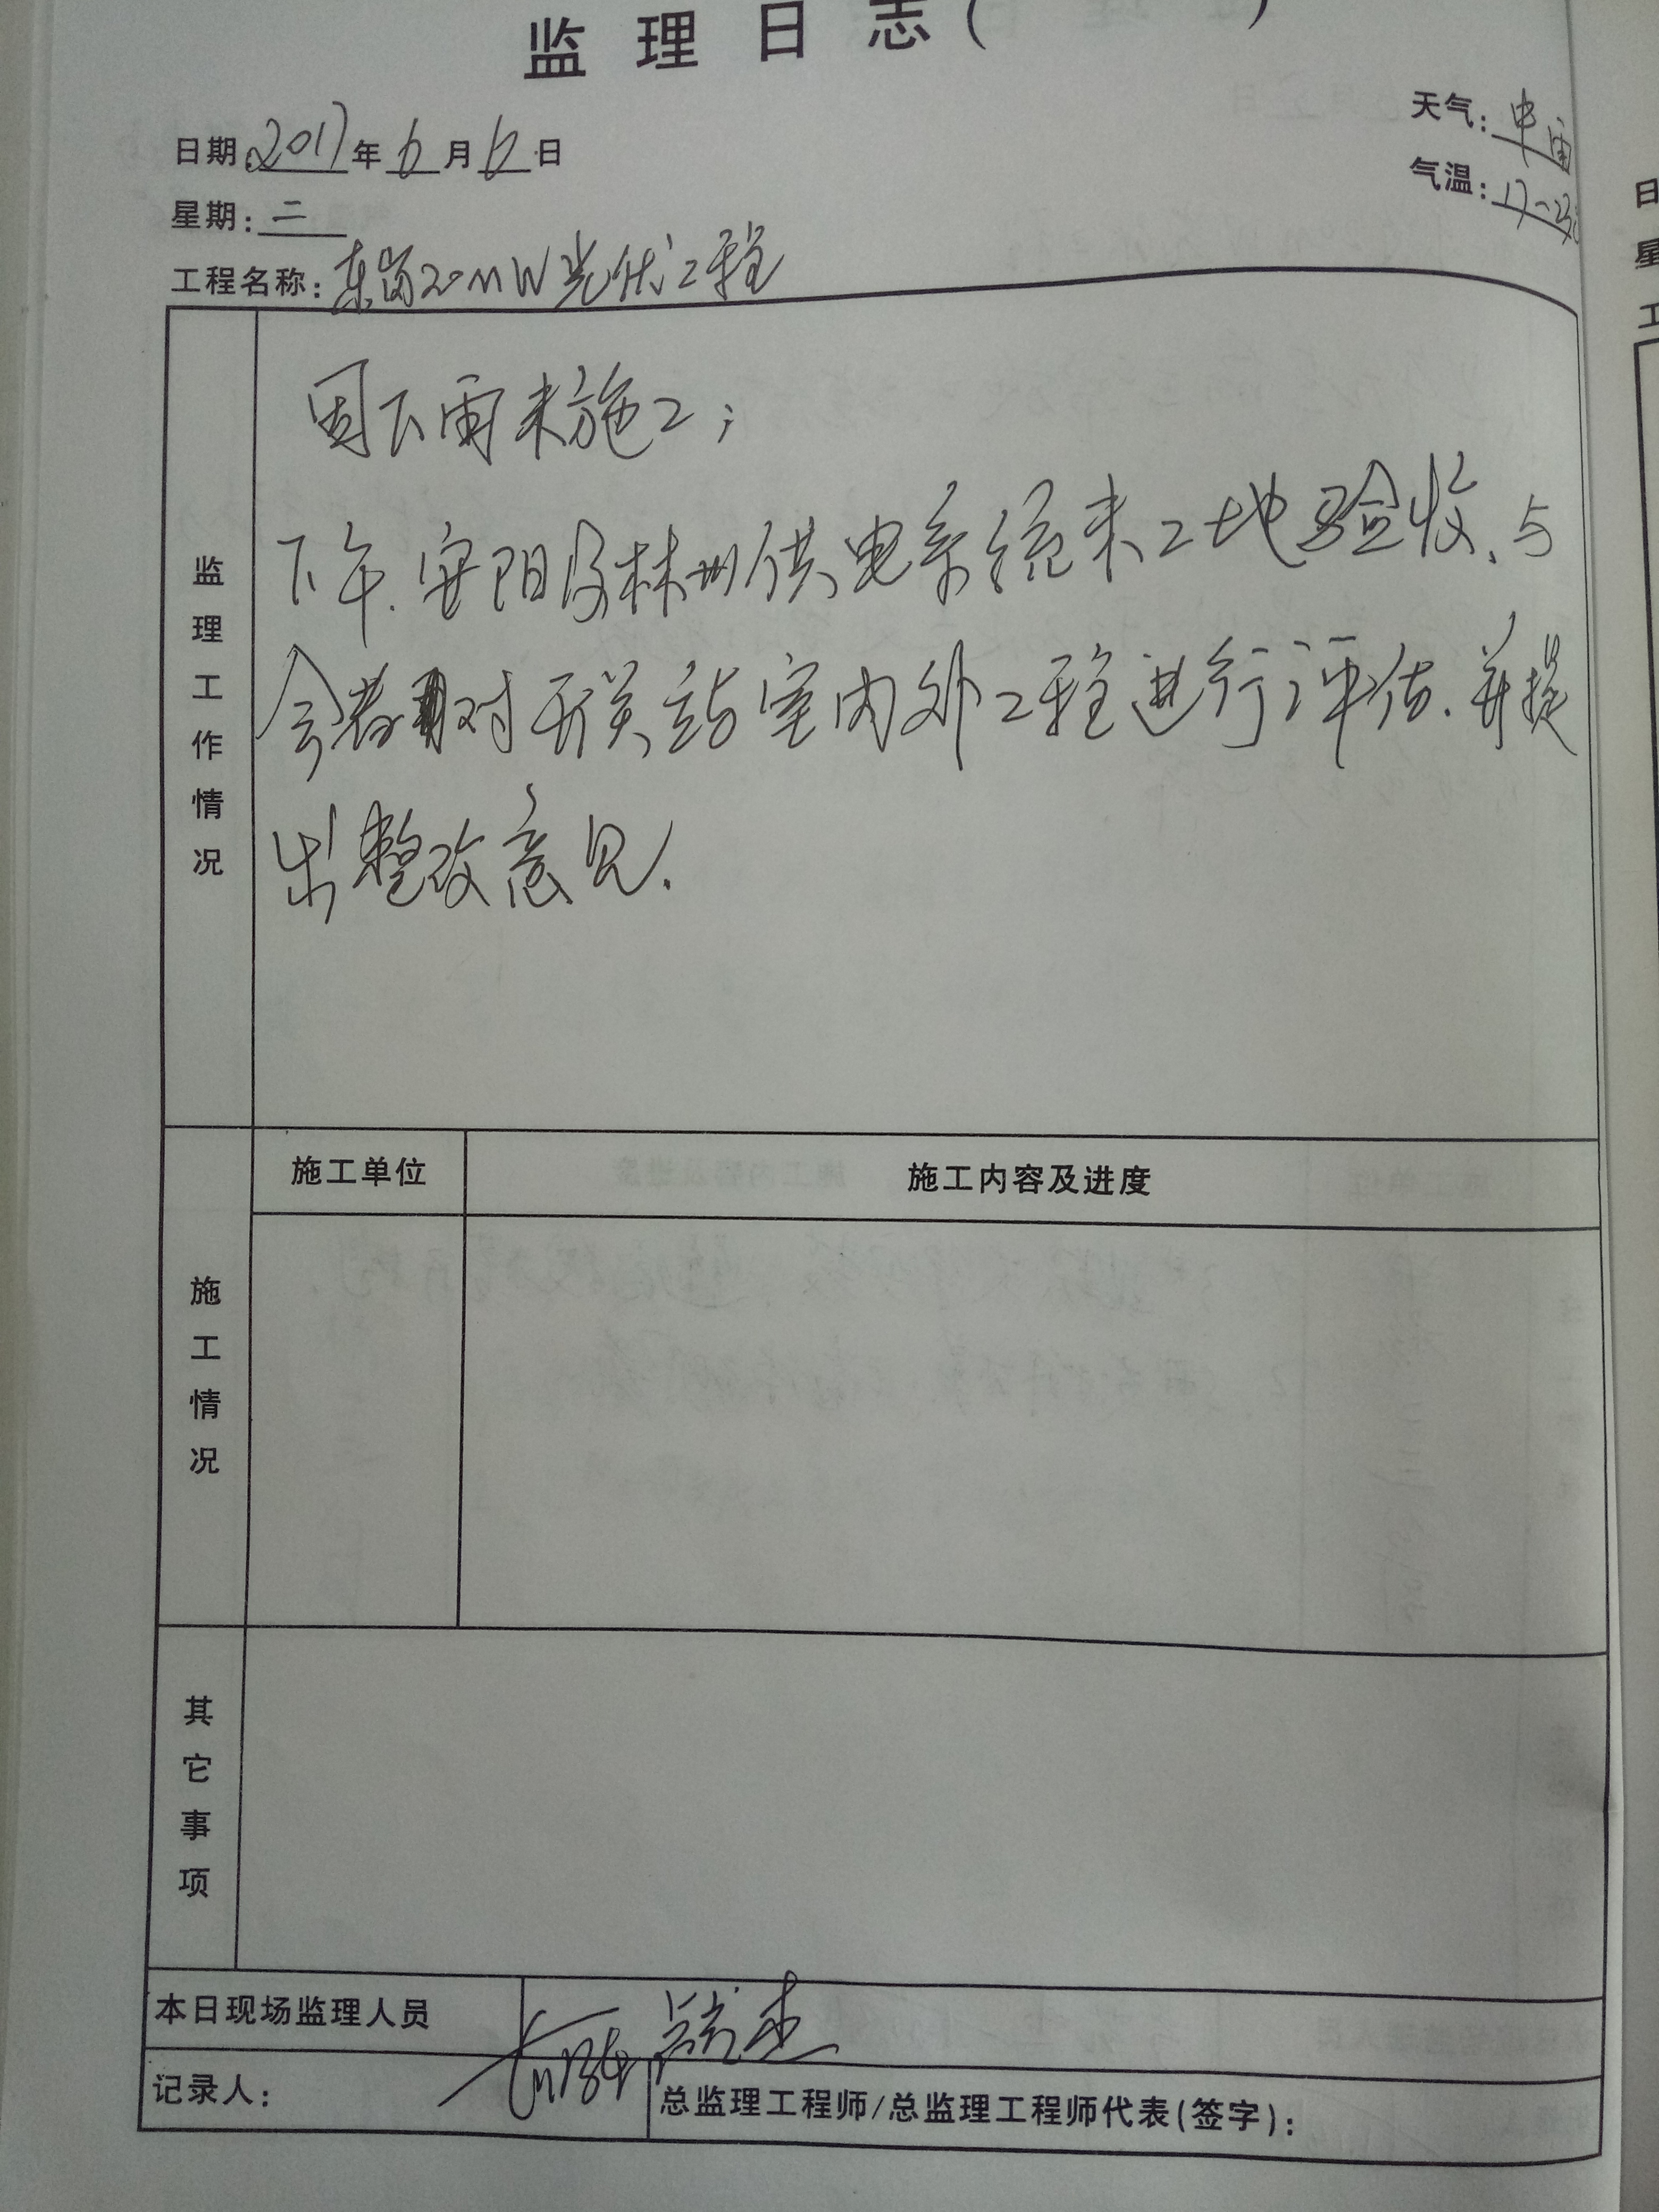 监理日志(       )
日期:2017年6月6日
天气:中雨
星期:二
气温:17-23
工程名称:东岗20MW光伏工程
监理工作情况
因下雨未施工;
下午.安阳及林州供电系统来工地验收、与
会者对开关站室内外工程进行评估.并提
出整改意见.
施工情况
施工单位
施工内容及进度
其它事项
本日现场监理人员
记录人:
总监理工程师/总监理工程师代表(签字):
日
星
工